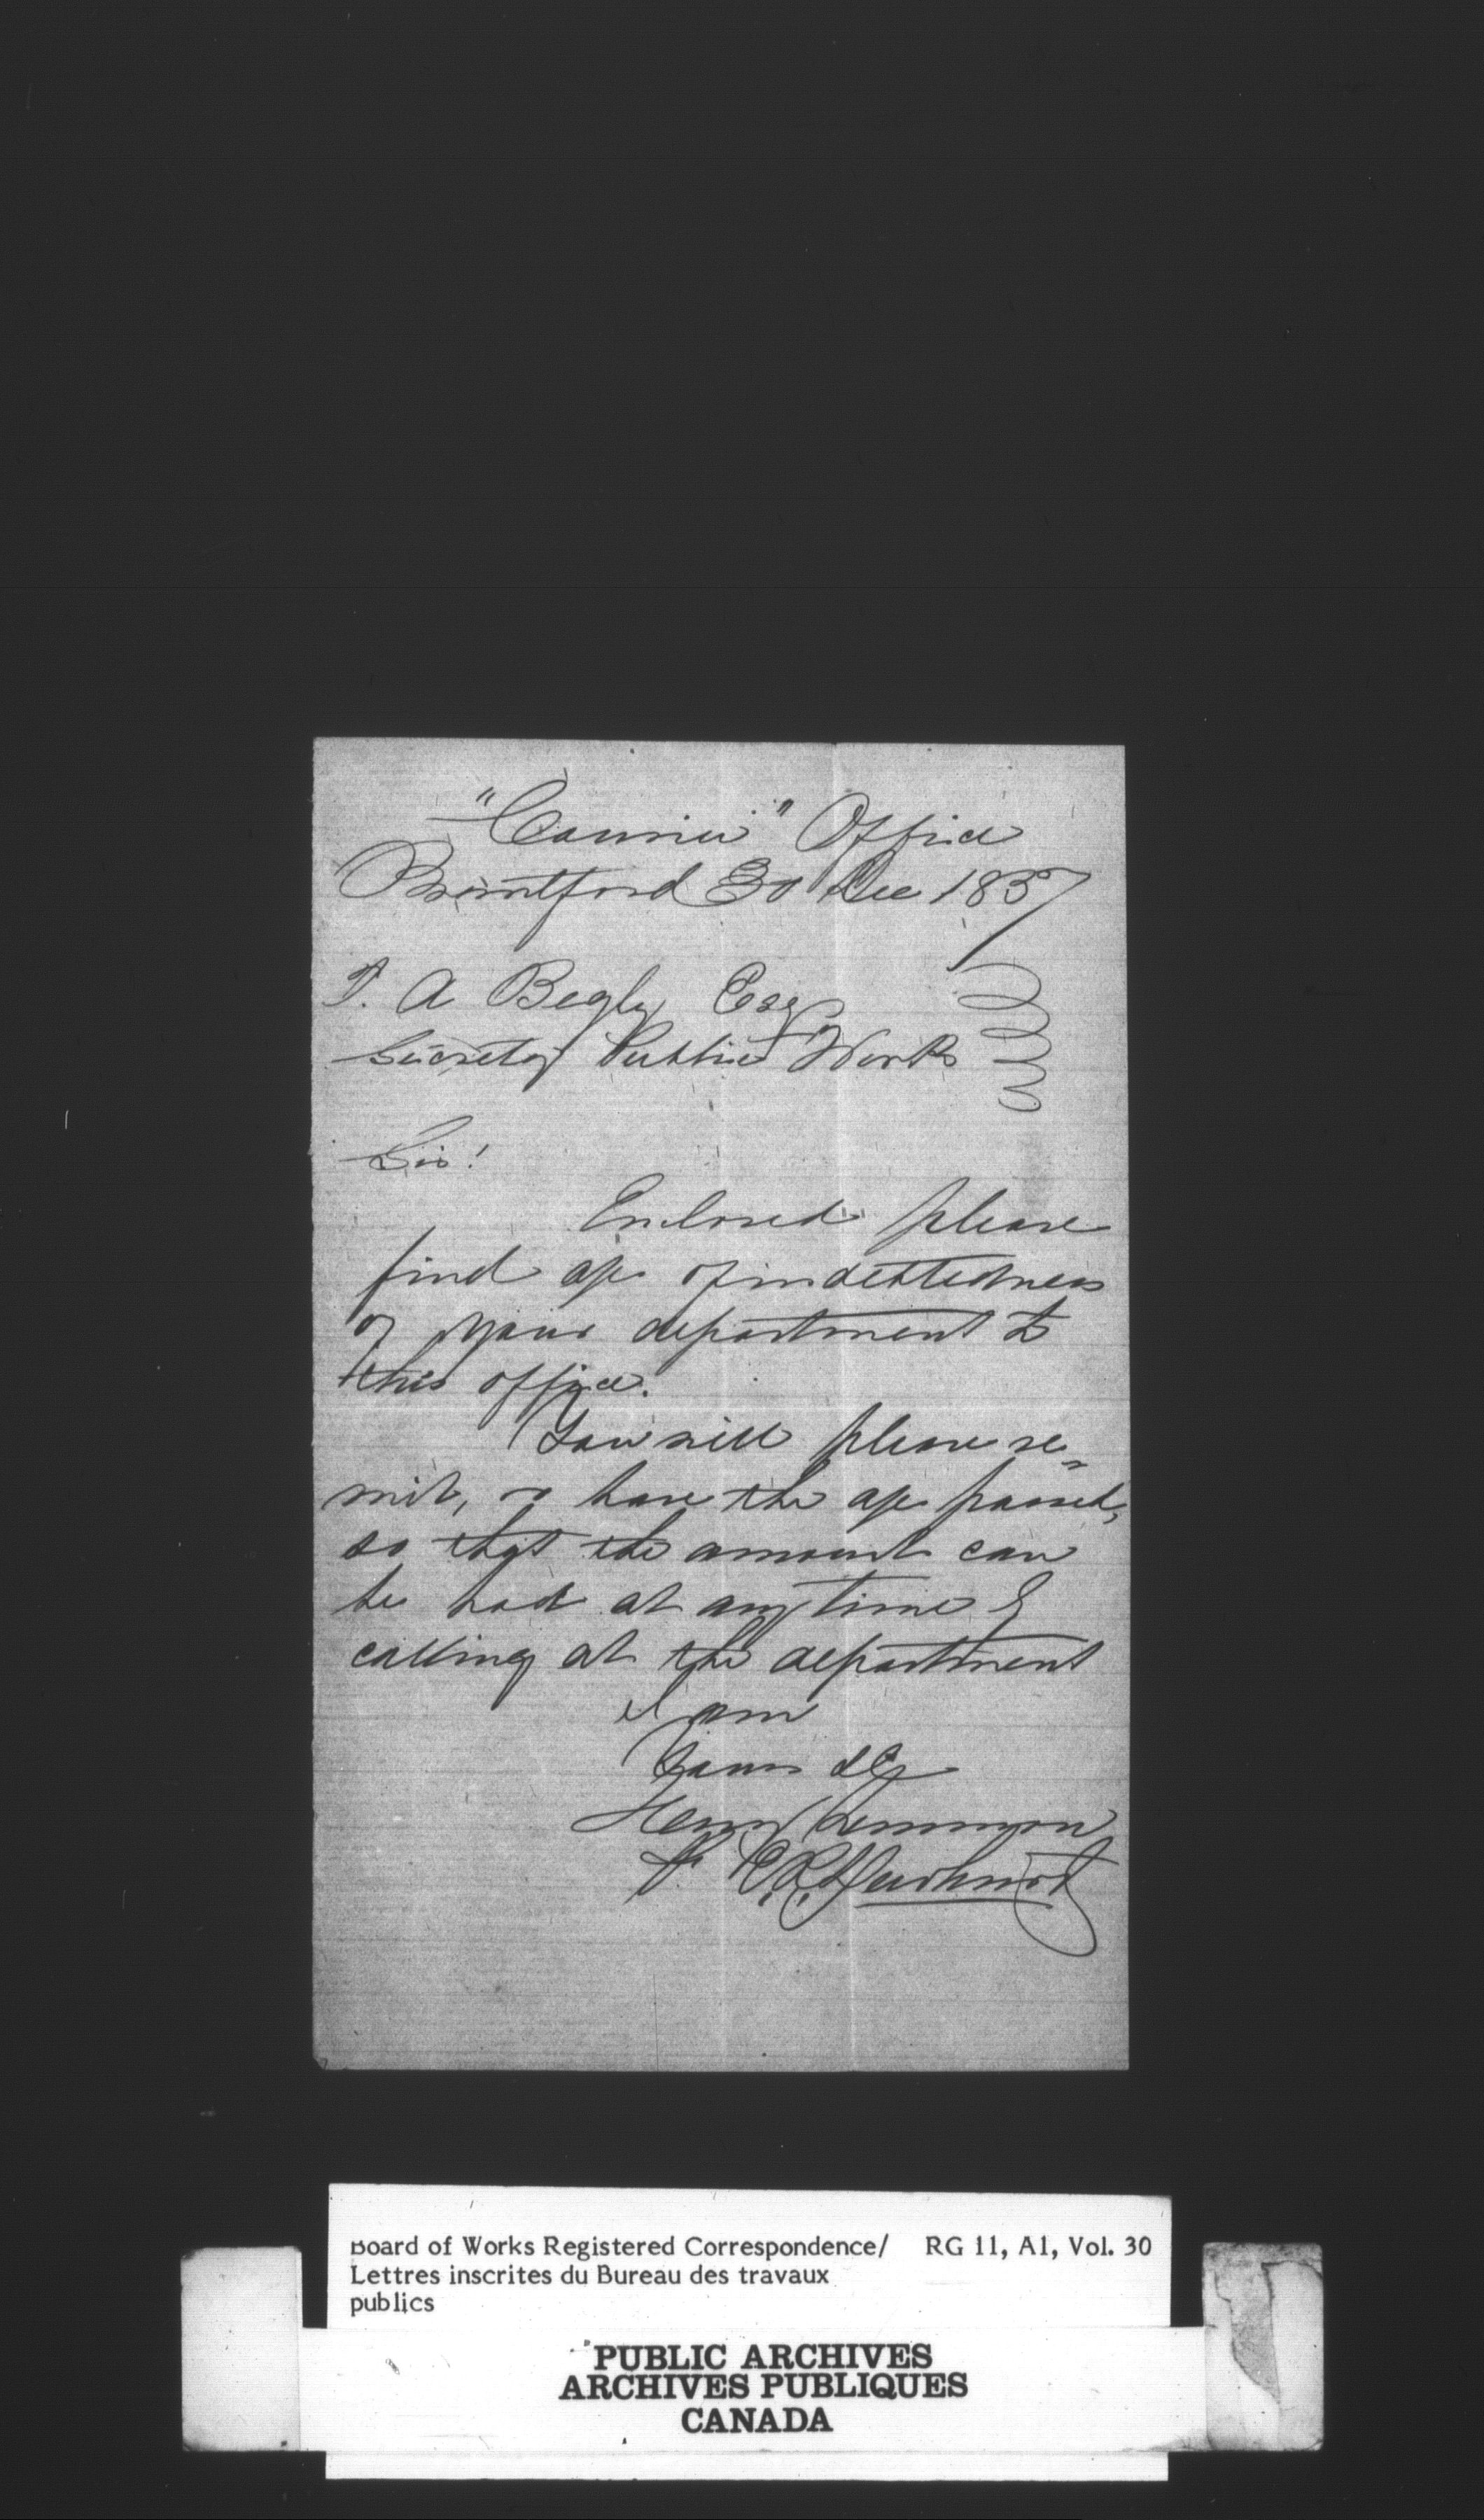 "Courier" Office
Brantford 30 Dec 1857
T. A Begly Esq
Secretary Public Works
Sir!
Enclosed please
find a/c of indebtedness
of your department to
this office.
You will please re=
mit, or have the a/c passed,
so that the amount can
be had at any time by
calling at the department
I am
Yours &c
Henry Lemmon
P. C. R.
Board of Works Registered Correspondence/ RG 11, A1, Vol. 30
Lettres inscrites du Bureau des travaux
publics
PUBLIC ARCHIVES
ARCHIVES PUBLIQUES
CANADA